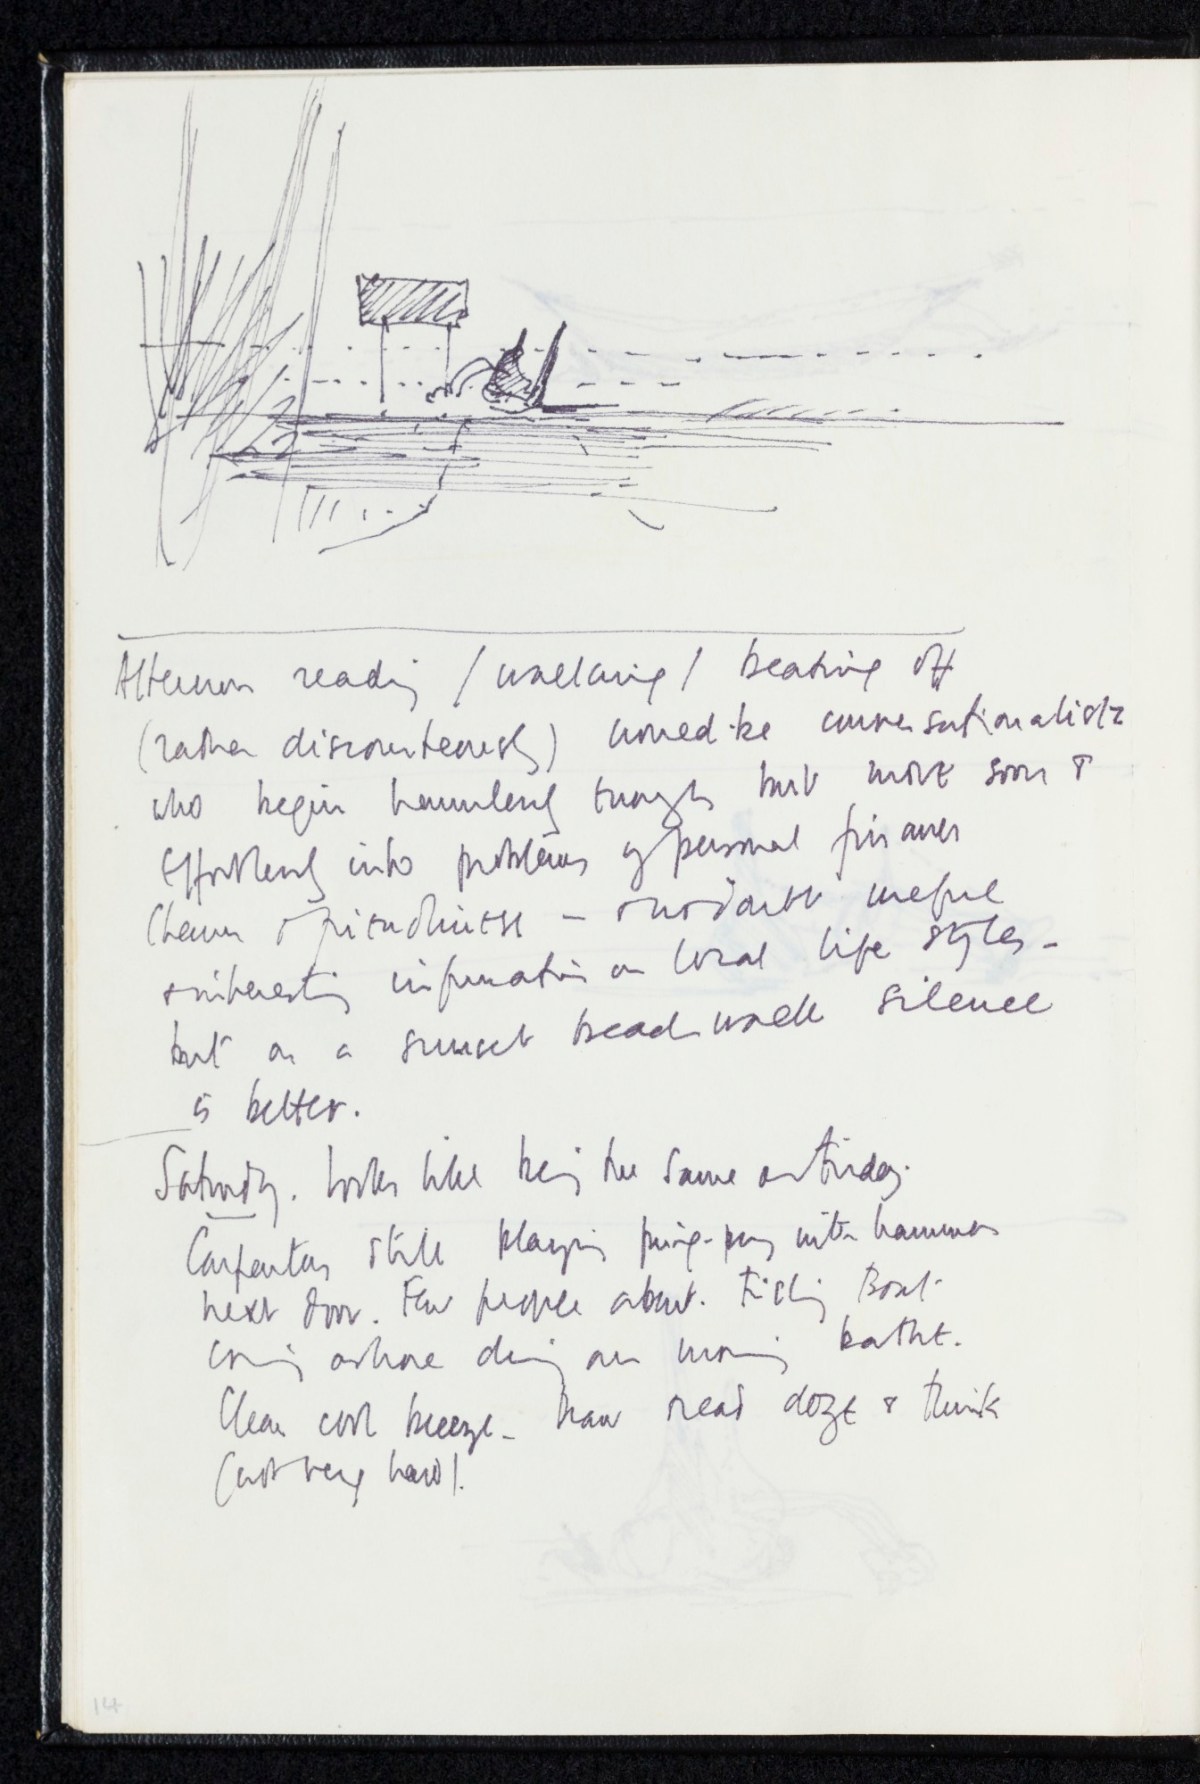 Afternoon reading / walking / beating off
(rather discourteously) would-be conversationalists
who begin harmlessly enough but move soon &
effortlessly into problems of personal finance
& interesting information on local life styles -
but on a sunset beach walk silence
is better.
Saturday. Looks like being the same as Friday.
Carpenters still playing ping-pong with hammers
next door. Few people about. Fishing Boat
coming ashore during our morning bathe.
Clear cool breeze. Draw read doze & think
(not very hard).
14